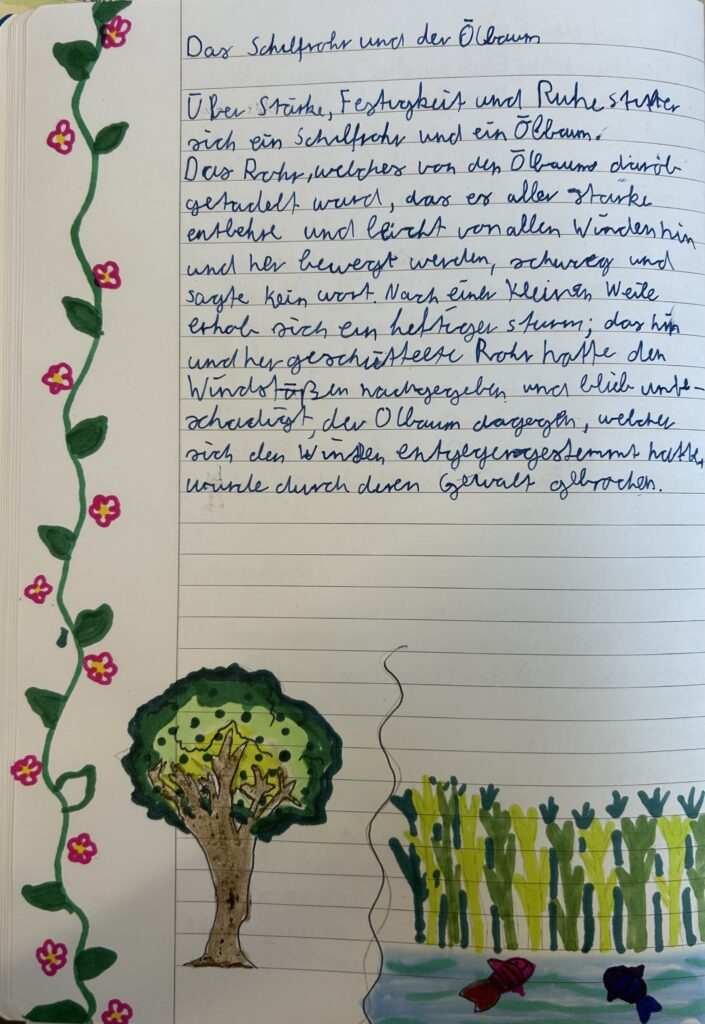 Das Schilfrohr und der Ölbaum
Über Stärke, Festigkeit und Ruhe stritten
sich ein Schilfrohr und ein Ölbaum.
Das Rohr, welches von den Ölbaums darob
getadelt ward, das es aller stärke
entbehre und leicht von allen Winden hin
und her bewegt werden, schwieg und
sagte kein wort. Nach einer kleinen Weile
erhob sich ein heftiger sturm; das hin
und her geschüttelte Rohr hatte den
Windstößen nachgegeben und blieb unbe-
schädigt, der Ölbaum dagegen, welcher
sich den Winden entgegengestemmt hatte,
wurde durch deren Gewalt gebrochen.